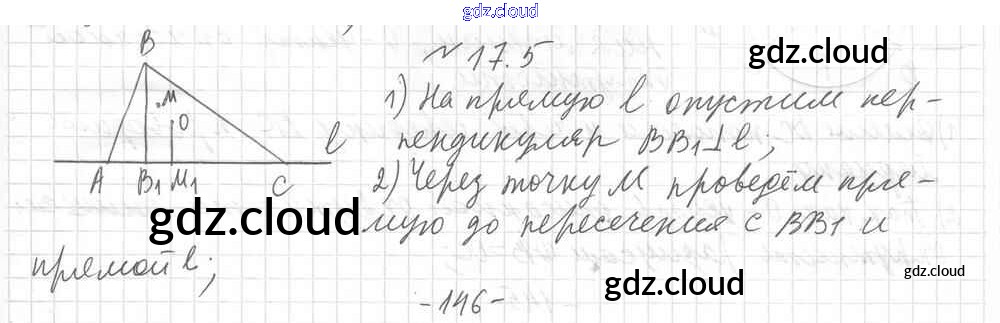 gdz.cloud
№ 17.5
gdz.cloud
B
M
O
l
A B₁ M₁ C
1) На прямую l опустим пер-
пендикуляр BB₁⊥l;
2) Через точку M проведём пря-
gdz.cloud
мую до пересечения с BB1 и
прямой l;
gdz.cloud
gdz.cloud
-146-